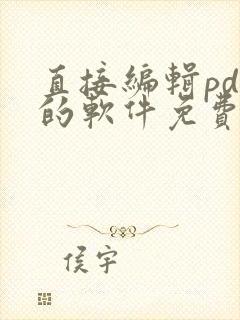 直接編輯pd
的軟件免費
侯宇